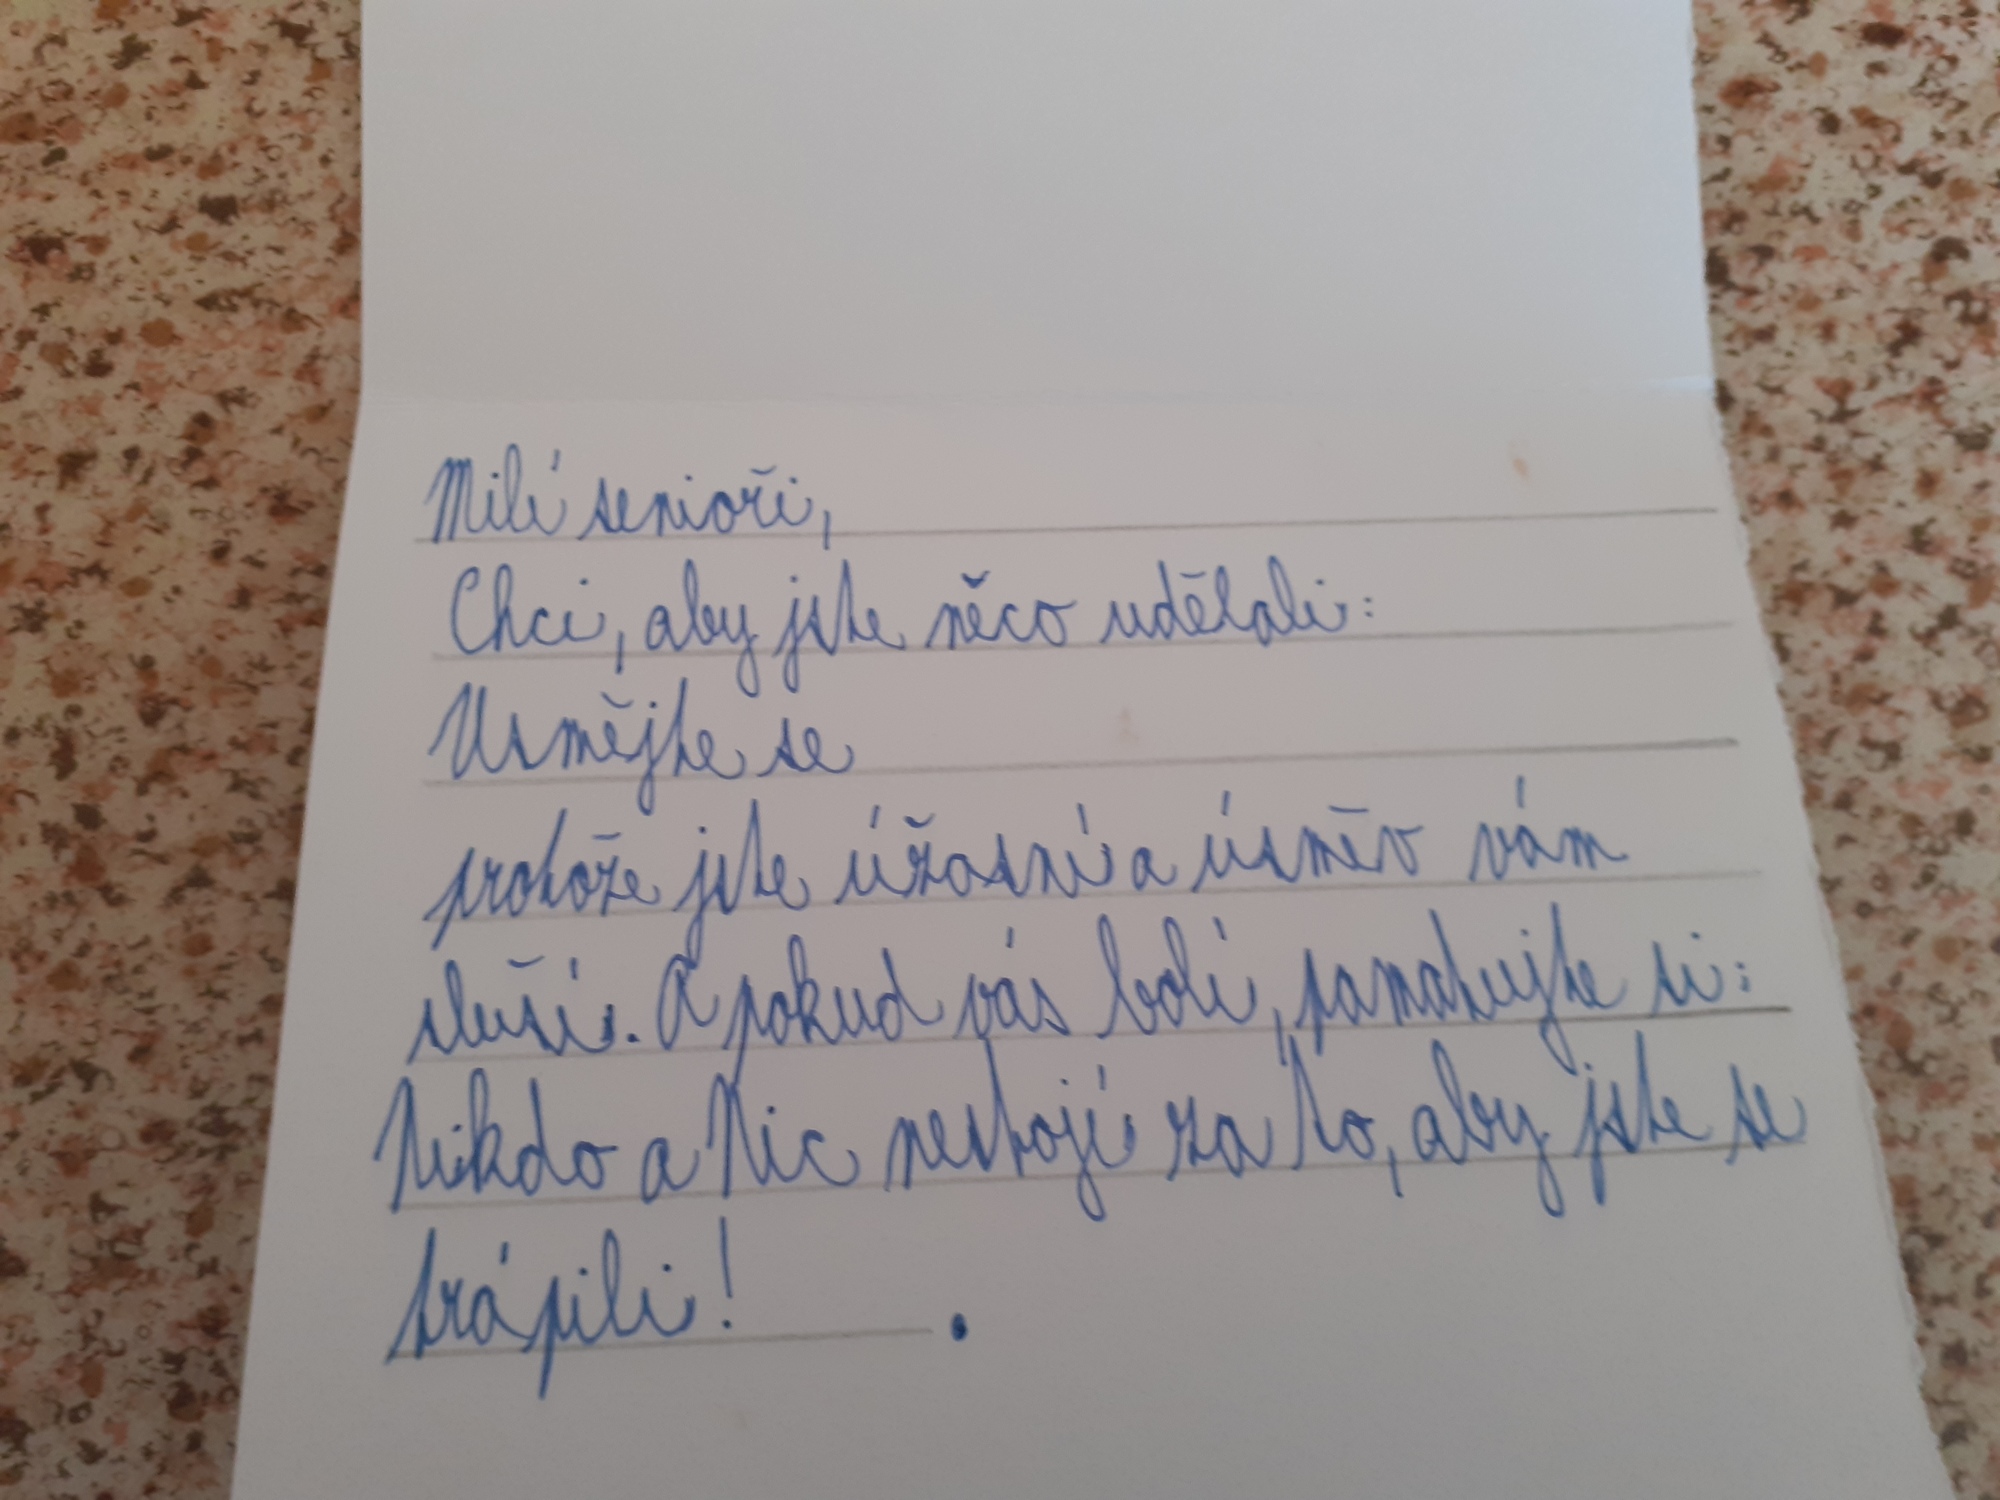 Milí senioři,
Chci, aby jste něco udělali:
Usmějte se
protože jste úžasní a úsměv vám
sluší. A pokud vás bolí, pamatujte si:
Nikdo a Nic nestojí za to, aby jste se
trápili! .